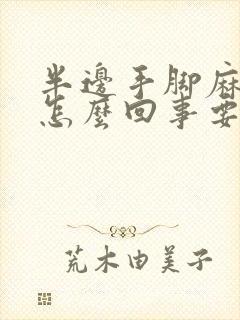 半邊手腳麻
怎麼回事要
荒木由美子